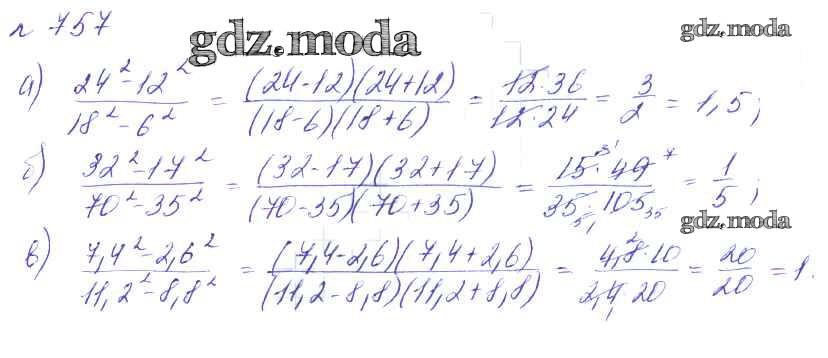 № 757
gdz.moda
gdz.moda
а) (24² - 12²)/(18² - 6²) = ((24-12)(24+12))/((18-6)(18+6)) = (12·36)/(12·24) = 3/2 = 1,5;
б) (32² - 17²)/(70² - 35²) = ((32-17)(32+17))/((70-35)(70+35)) = (15·49)/(35·105) = 1/5;
gdz.moda
в) (7,4² - 2,6²)/(11,2² - 8,8²) = ((7,4-2,6)(7,4+2,6))/((11,2-8,8)(11,2+8,8)) = (4,8·10)/(2,4·20) = 20/20 = 1.